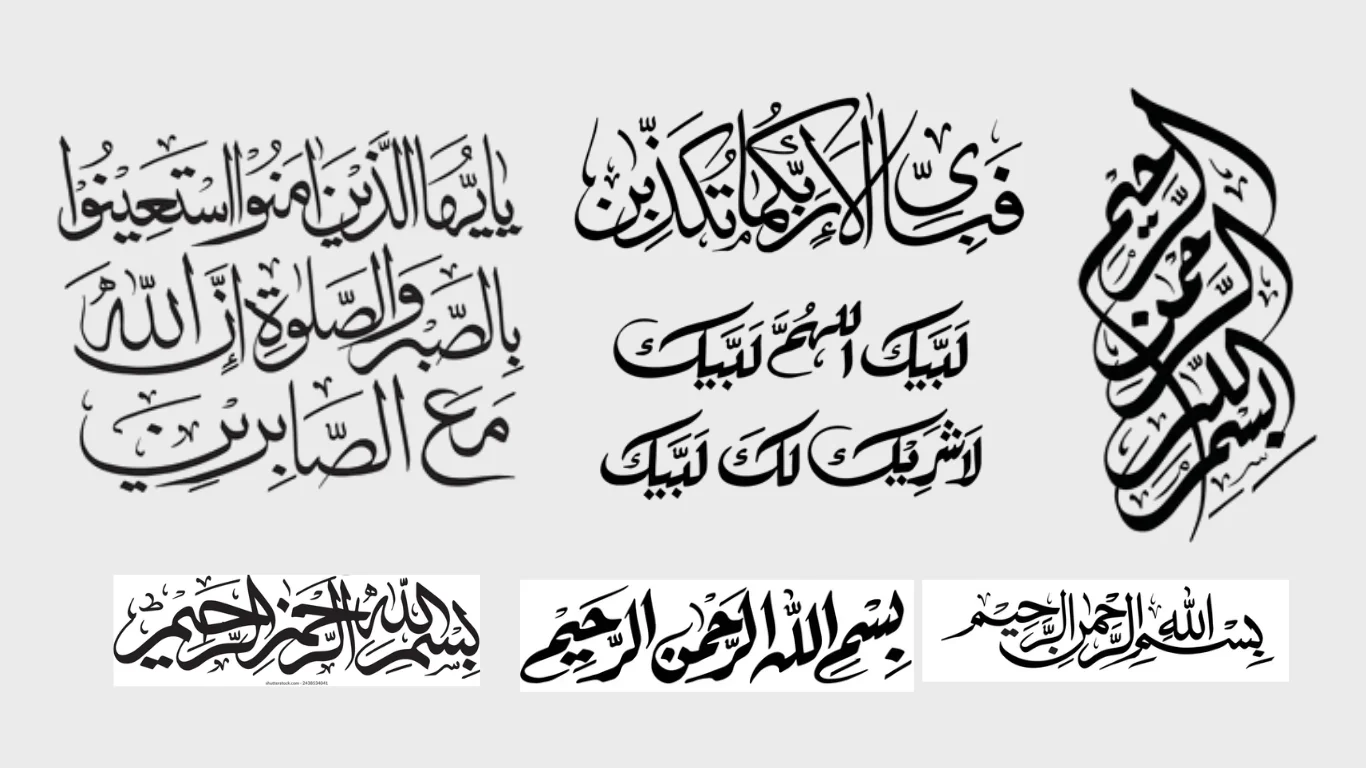 يايها الذين امنوا استعينوا
بالصبر والصلوة ان الله
مع الصابرين
فَبِاَيِّ اٰلَاءِ رَبِّكُمَا تُكَذِّبٰنِ
لَبَّيْكَ اللهُمَّ لَبَّيْكَ
لَا شَرِيْكَ لَكَ لَبَّيْكَ
بسم الله الرحمن الرحيم
بسم الله الرحمن الرحيم
shutterstock.com · 2438034041
بِسْمِ اللّٰهِ الرَّحْمٰنِ الرَّحِيْمِ
بسم الله الرحمن الرحيم